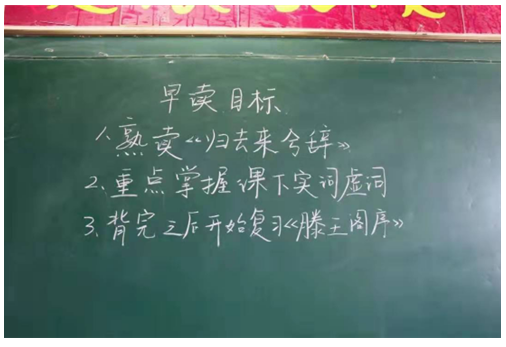 早读目标
1、熟读《归去来兮辞》
2、重点掌握课下实词虚词
3、背完之后开始复习《滕王阁序》